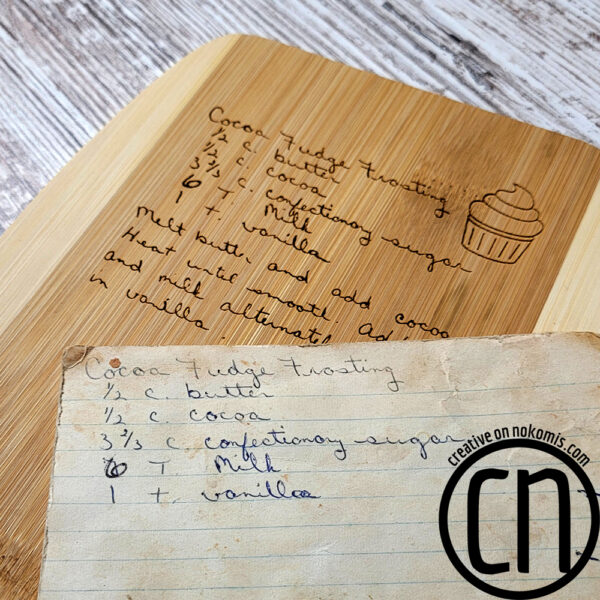 Cocoa Fudge Frosting
1/2 c. butter
1/2 c. cocoa
3 2/3 c. confectionary sugar
6 T Milk
1 t. vanilla
Melt butter and add cocoa
Heat until smooth. Ad
and milk alternatel
in vanilla.
Cocoa Fudge Frosting
1/2 c. butter
1/2 c. cocoa
3 2/3 c. confectionary sugar
6 T Milk
1 t. vanilla
creative on nokomis.com
cn